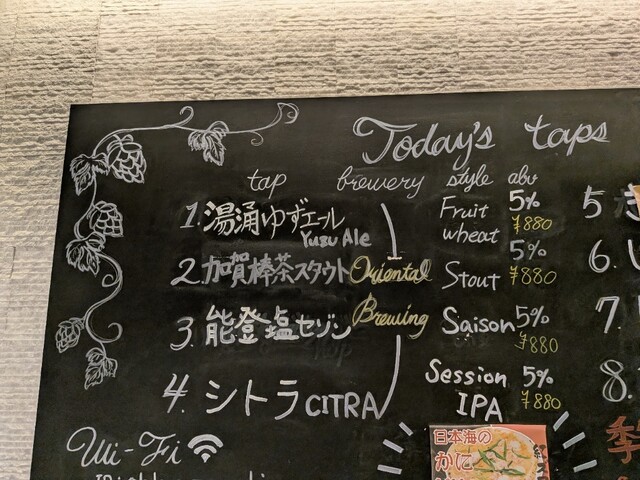 Today's taps
tap brewery style abv
1. 湯涌ゆずエール Fruit 5%
Yuzu Ale wheat ¥880
2. 加賀棒茶スタウト Oriental Stout 5% ¥880
3. 能登塩セゾン Brewing Saison 5%
¥880
4. シトラ CITRA Session 5%
IPA ¥880
5
6.
7.
8.
季
Wi-Fi
日本海の
かに